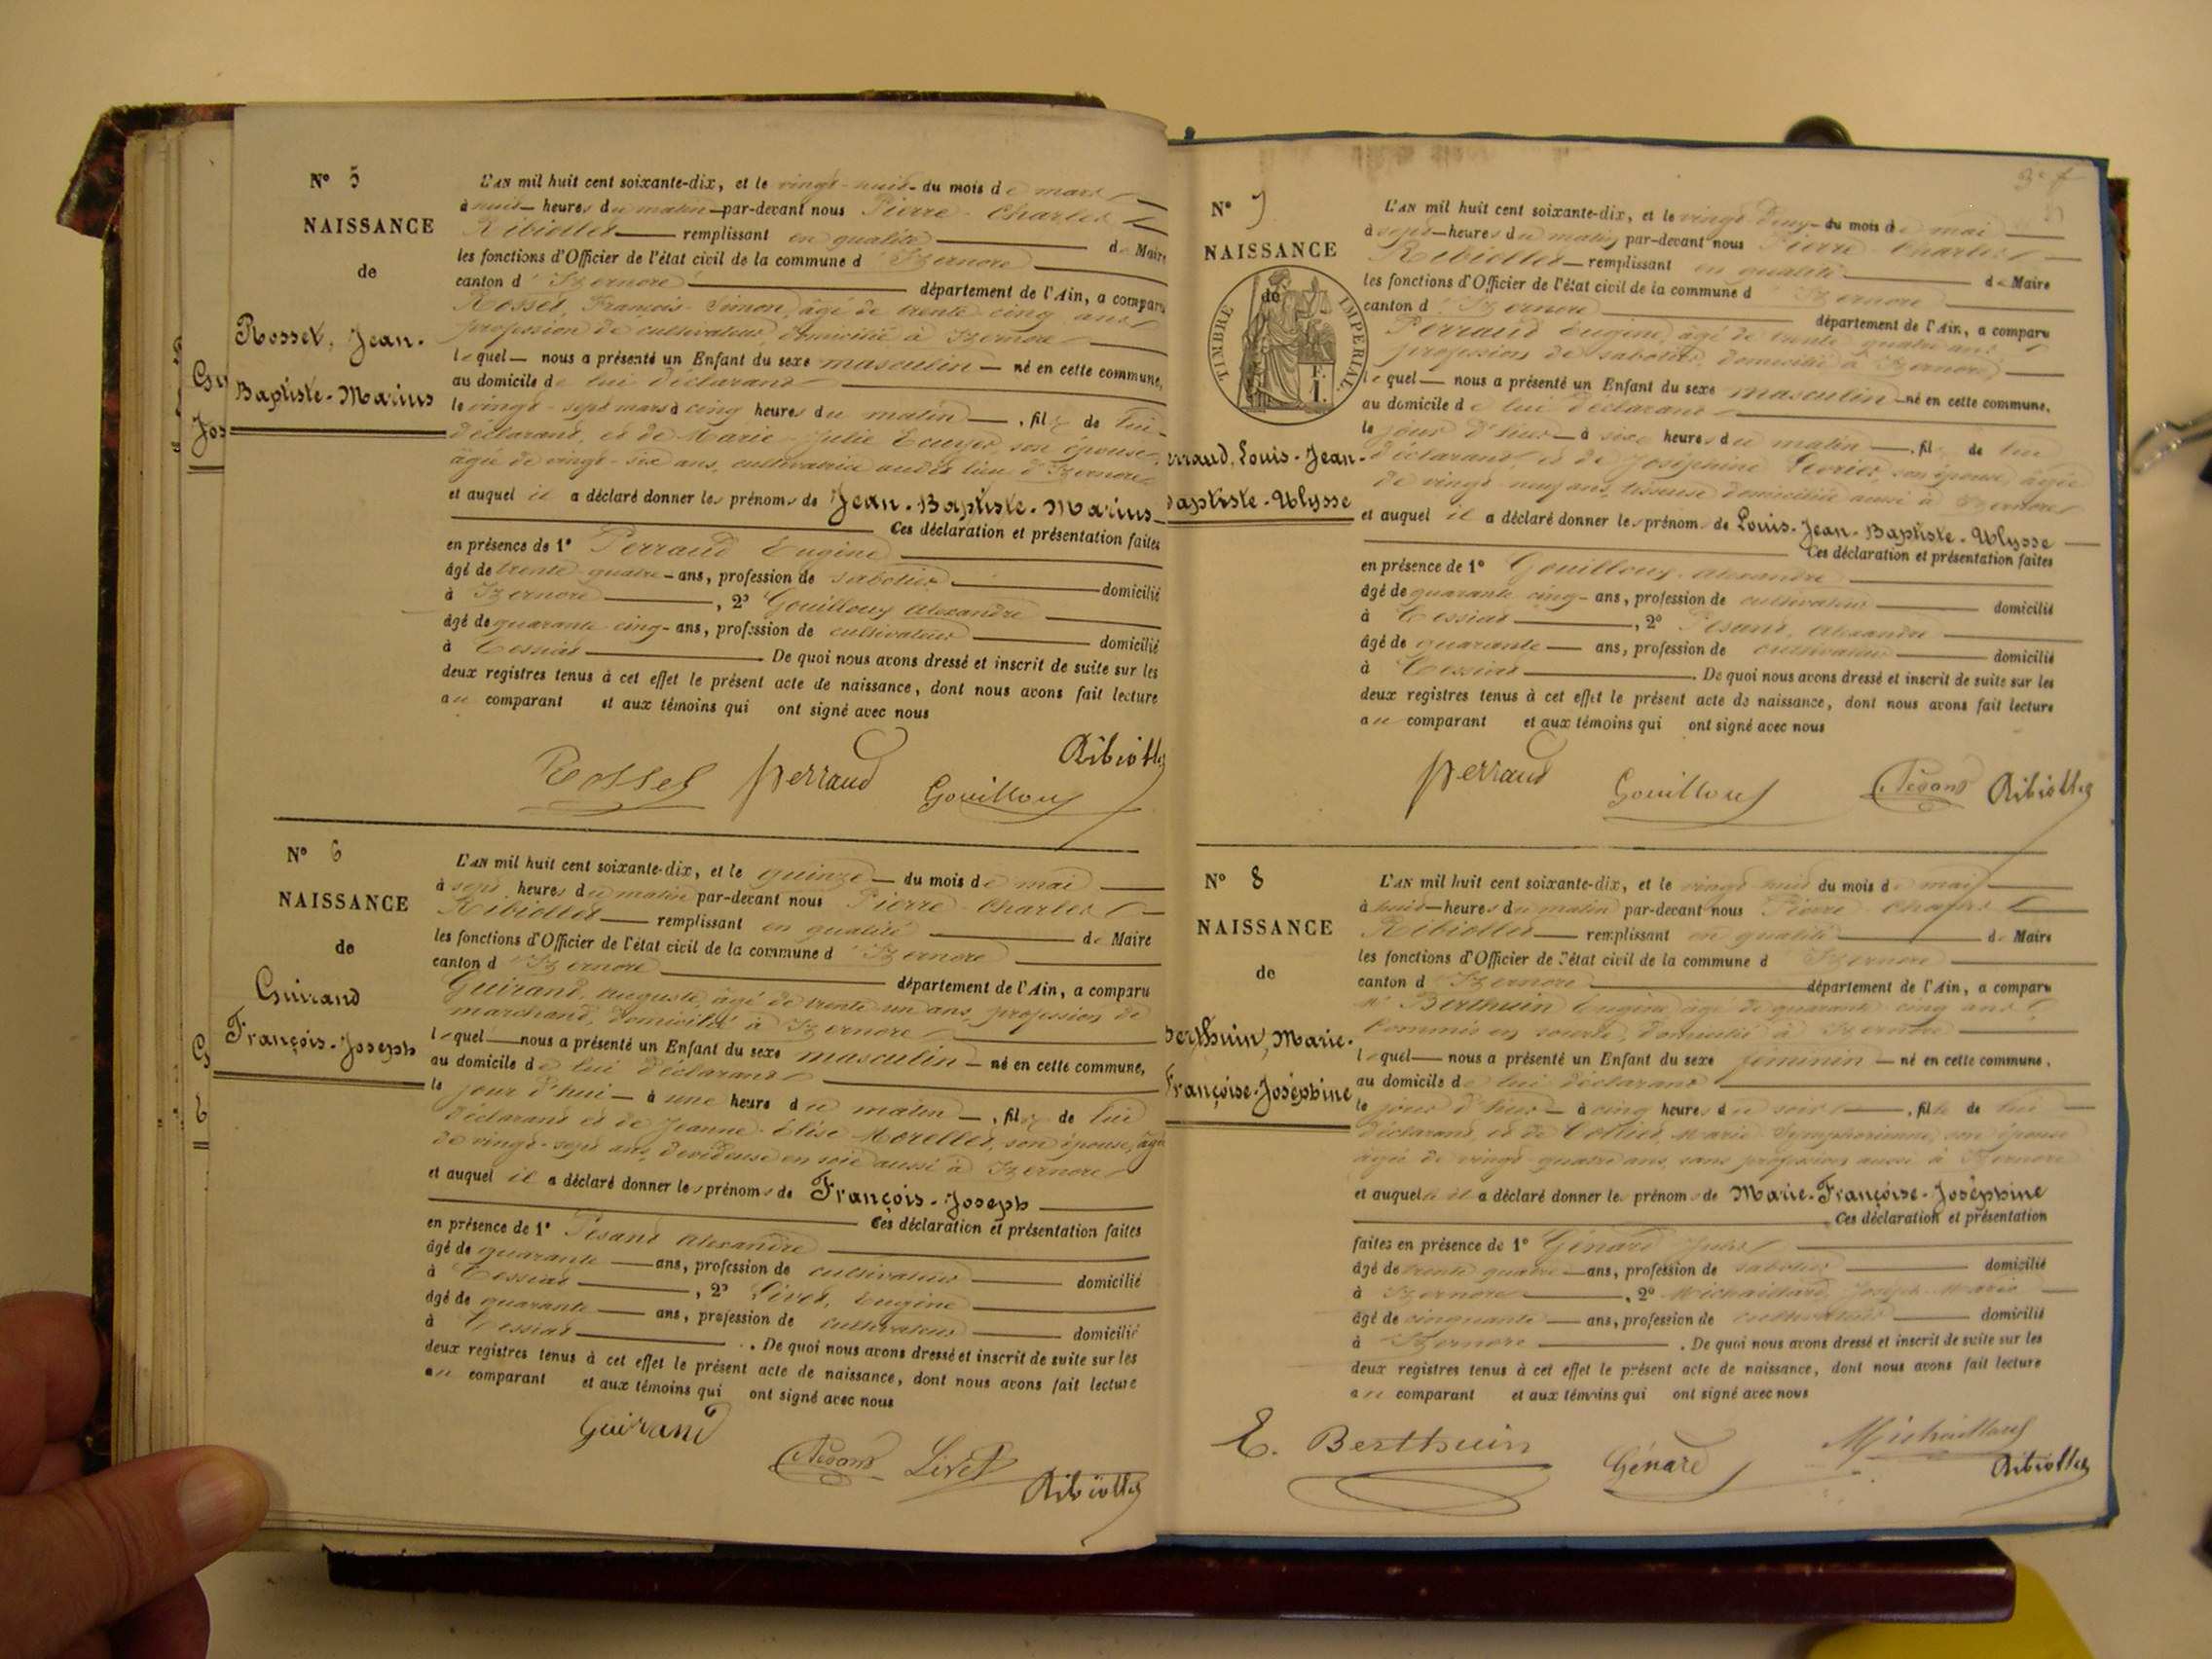 N° 5
NAISSANCE
de
Rosset, Jean-
Baptiste-Marius
L'AN mil huit cent soixante-dix, et le vingt-huit du mois de mars
à huit heures du matin par-devant nous Pierre-Charles
Ribiollet remplissant en qualité de Maire
les fonctions d'Officier de l'état civil de la commune d'Izernore
canton d'Izernore département de l'Ain, a comparu
Rosset, François-Simon, âgé de trente cinq ans
profession de cultivateur, domicilié à Izernore
lequel nous a présenté un Enfant du sexe masculin né en cette commune,
au domicile de lui déclarant
le vingt-sept mars à cinq heures du matin, fils de lui
déclarant, et de Marie-Julie Ecuyer, son épouse,
âgée de vingt-six ans, cultivatrice audit lieu d'Izernore
et auquel il a déclaré donner les prénoms de Jean-Baptiste-Marius
Ces déclaration et présentation faites
en présence de 1° Perraud Eugène
âgé de trente quatre ans, profession de sabotier domicilié
à Izernore, 2° Gouilloux Alexandre
âgé de quarante cinq ans, profession de cultivateur domicilié
à Cessiat De quoi nous avons dressé et inscrit de suite sur les
deux registres tenus à cet effet le présent acte de naissance, dont nous avons fait lecture
au comparant et aux témoins qui ont signé avec nous
Rosset Perraud Gouilloux Ribiollet
N° 6
NAISSANCE
de
Guirand
François-Joseph
L'AN mil huit cent soixante-dix, et le quinze du mois de mai
à sept heures du matin par-devant nous Pierre-Charles
Ribiollet remplissant en qualité de Maire
les fonctions d'Officier de l'état civil de la commune d'Izernore
canton d'Izernore département de l'Ain, a comparu
Guirand, Auguste, âgé de trente un ans, profession de
marchand, domicilié à Izernore
lequel nous a présenté un Enfant du sexe masculin né en cette commune,
au domicile de lui déclarant
le jour d'hui à une heure du matin, fils de lui
déclarant et de Jeanne-Élise Morellet, son épouse, âgée
de vingt-sept ans, dévideuse en soie aussi à Izernore
et auquel il a déclaré donner les prénoms de François-Joseph
Ces déclaration et présentation faites
en présence de 1° Pesant Alexandre
âgé de quarante ans, profession de cultivateur domicilié
à Cessiat, 2° Livet, Eugène
âgé de quarante ans, profession de cultivateur domicilié
à Cessiat. De quoi nous avons dressé et inscrit de suite sur les
deux registres tenus à cet effet le présent acte de naissance, dont nous avons fait lecture
au comparant et aux témoins qui ont signé avec nous
Guirand
Pesant Livet Ribiollet
N° 7
NAISSANCE
de
TIMBRE IMPERIAL
erraud, Louis-Jean-
Baptiste-Ulysse
L'AN mil huit cent soixante-dix, et le vingt deux du mois de mai
à sept heures du matin, par-devant nous Pierre-Charles
Ribiollet remplissant en qualité de Maire
les fonctions d'Officier de l'état civil de la commune d'Izernore
canton d'Izernore département de l'Ain, a comparu
Perraud Eugène, âgé de trente quatre ans
profession de sabotier, domicilié à Izernore
lequel nous a présenté un Enfant du sexe masculin né en cette commune,
au domicile de lui déclarant
le jour d'hui à six heures du matin, fils de lui
déclarant, et de Joséphine son épouse, âgée
de vingt-neuf ans, tisseuse domiciliée aussi à Izernore
et auquel il a déclaré donner les prénoms de Louis-Jean-Baptiste-Ulysse
Ces déclaration et présentation faites
en présence de 1° Gouilloux Alexandre
âgé de quarante cinq ans, profession de cultivateur domicilié
à Cessiat, 2° Pesant, Alexandre
âgé de quarante ans, profession de cultivateur domicilié
à Cessiat. De quoi nous avons dressé et inscrit de suite sur les
deux registres tenus à cet effet le présent acte de naissance, dont nous avons fait lecture
au comparant et aux témoins qui ont signé avec nous
Perraud Gouilloux Pesant Ribiollet
N° 8
NAISSANCE
de
Berthuin, Marie-
Françoise-Joséphine
L'AN mil huit cent soixante-dix, et le vingt huit du mois de mai
à huit heures du matin par-devant nous Pierre-Charles
Ribiollet remplissant en qualité de Maire
les fonctions d'Officier de l'état civil de la commune d'Izernore
canton d'Izernore département de l'Ain, a comparu
Mr Berthuin Eugène, âgé de quarante cinq ans
Commis en domicilié à Izernore
lequel nous a présenté un Enfant du sexe féminin né en cette commune,
au domicile de lui déclarant
le jour d'hier à cinq heures du soir, fille de lui
déclarant, et de Collier, Marie Symphorienne, son épouse
âgée de vingt-quatre ans, sans profession aussi à Izernore
et auquel il a déclaré donner les prénoms de Marie-Françoise-Joséphine
Ces déclaration et présentation
faites en présence de 1° Génard Jules
âgé de trente quatre ans, profession de sabotier domicilié
à Izernore, 2° Michaillard, Joseph-Marie
âgé de cinquante ans, profession de cultivateur domicilié
à Izernore. De quoi nous avons dressé et inscrit de suite sur les
deux registres tenus à cet effet le présent acte de naissance, dont nous avons fait lecture
au comparant et aux témoins qui ont signé avec nous
E. Berthuin Génard Michaillard
Ribiollet